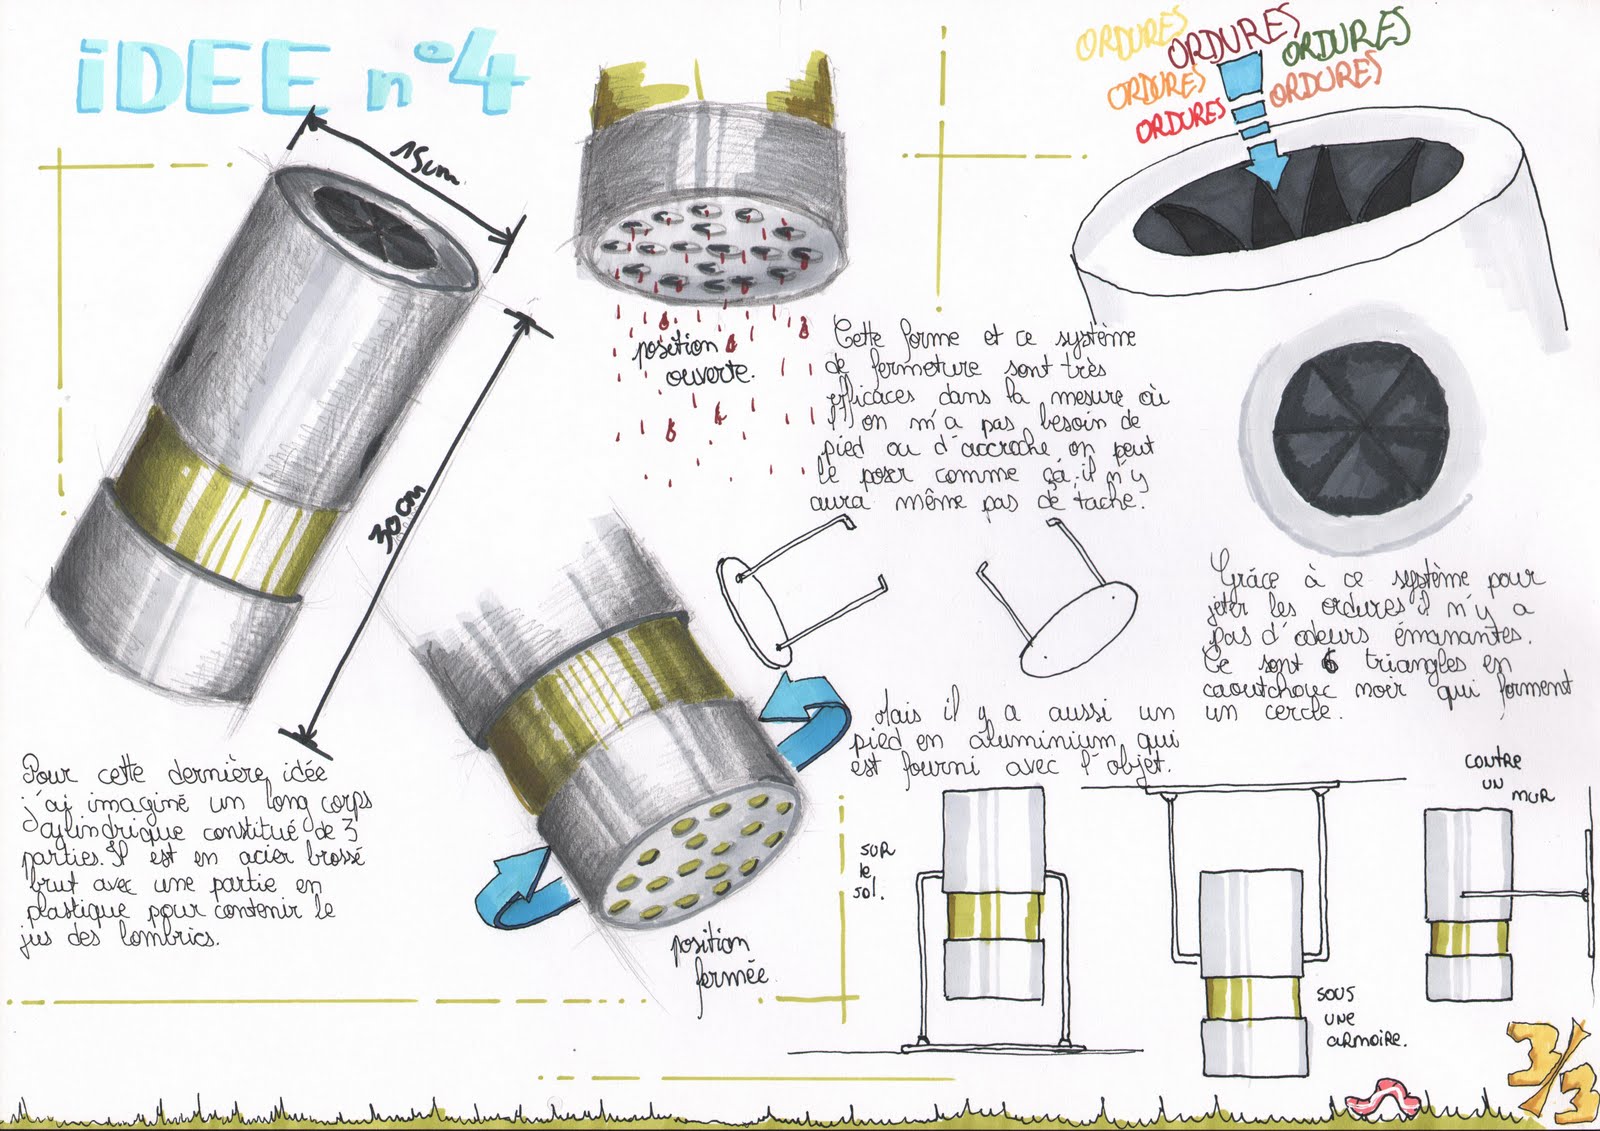 iDEE n°4
ORDURES
ORDURES
ORDURES
ORDURES
ORDURES
ORDURES
15cm
30cm
position
ouverte.
Cette forme et ce système
de fermeture sont très
efficaces dans la mesure où
l'on n'a pas besoin de
pied ou d'accroche on peut
le poser comme ça il n'y
aura même pas de tache.
Grâce à ce système pour
jeter les ordures il n'y a
pas d'odeurs émanantes.
Ce sont 6 triangles en
caoutchouc noir qui forment
un cercle.
Mais il y a aussi un
pied en aluminium qui
est fourni avec l'objet.
Pour cette dernière idée
j'ai imaginé un long corps
cylindrique constitué de 3
parties. Il est en acier brossé
brut avec une partie en
plastique pour contenir le
jus des lombrics.
position
fermée.
SUR
le
sol.
SOUS
UNE
armoire.
CONTRE
UN
MUR
3/3